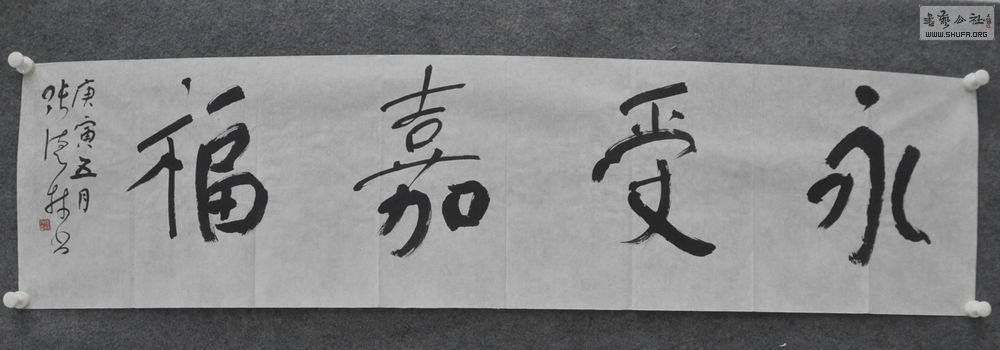 永受嘉福
庚寅五月
张德林书
书艺公社
WWW.SHUFA.ORG